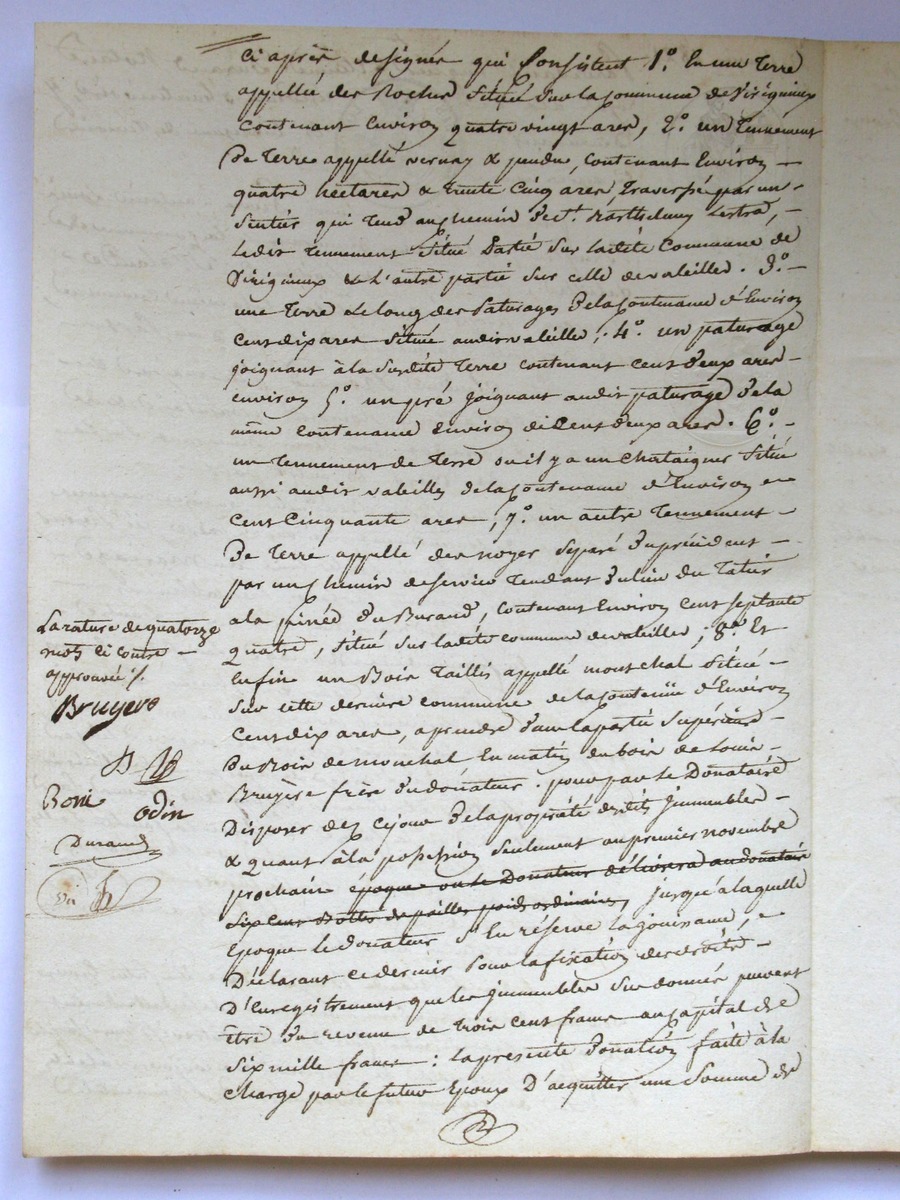 ci après designés qui Consistent 1.° En une Terre
appellée des Roches située sur la Commune de Virigneux
contenant Environ quatre vingt ares, 2.° un Tennement
De Terre appellé vernay & pendu, contenant Environ
quatre hectares & trente Cinq ares, traversée par un
Sentier qui Tend au chemin Barthelemy Lestra,
Ledit Tennement Situé Partie Sur ladite Commune de
Virigneux & L'autre partie sur celle de valeilles. 3.°
une Terre Le long des Paturages De la Contenance d'Environ
Cent dix ares située audit valeille; 4.° un paturage
joignant à la Susdite Terre contenant cent deux ares
environ 5.° un pré joignant audit paturage De la
même contenance Environ de Cent deux ares. 6.°
un Tennement de Terre ou il y a un Chataigner Situé
aussi audit valeilles de la Contenance d'Environ
Cent Cinquante ares, 7.° un autre Tennement
De Terre appellé des noyer separé Du précédent
par un chemin de service Tendant Du lieu du
a la Du Buraud, contenant Environ cent septante
quatre, situé sur ladite commune de valeilles, 8.° Et
Enfin un Bois Taillis appellé montchal situé
Sur cette dernière commune de la Contenue d'Environ
Cent dix ares, a prendre dans la partie Supérieure
Du Bois de monchal En matin du bois de Louis
Bruyère frère du donateur. pour par le Donataire
Disposer dez cejour De la propriété desdits Immeubles
& quant à la possession seulement au premier novembre
prochain époque ou le Donateur délivrera au donataire
Six Cent Bottes de pailles poids ordinaire, jusqu'à laquelle
Epoque le donateur S'En réserve la jouissance,
Déclarant ce dernier pour la fixation des droits
D'Enregistrement que les Immeubles sus donnés peuvent
être Du revenu de Trois Cent francs au Capital de
Six mille francs : la présente Donation faite à la
Charge par le futur Epoux D'acquitter une Somme de
La rature de quatorze
mots ci contre
approuvée ./.
Bruyere
Boni odin
Durand